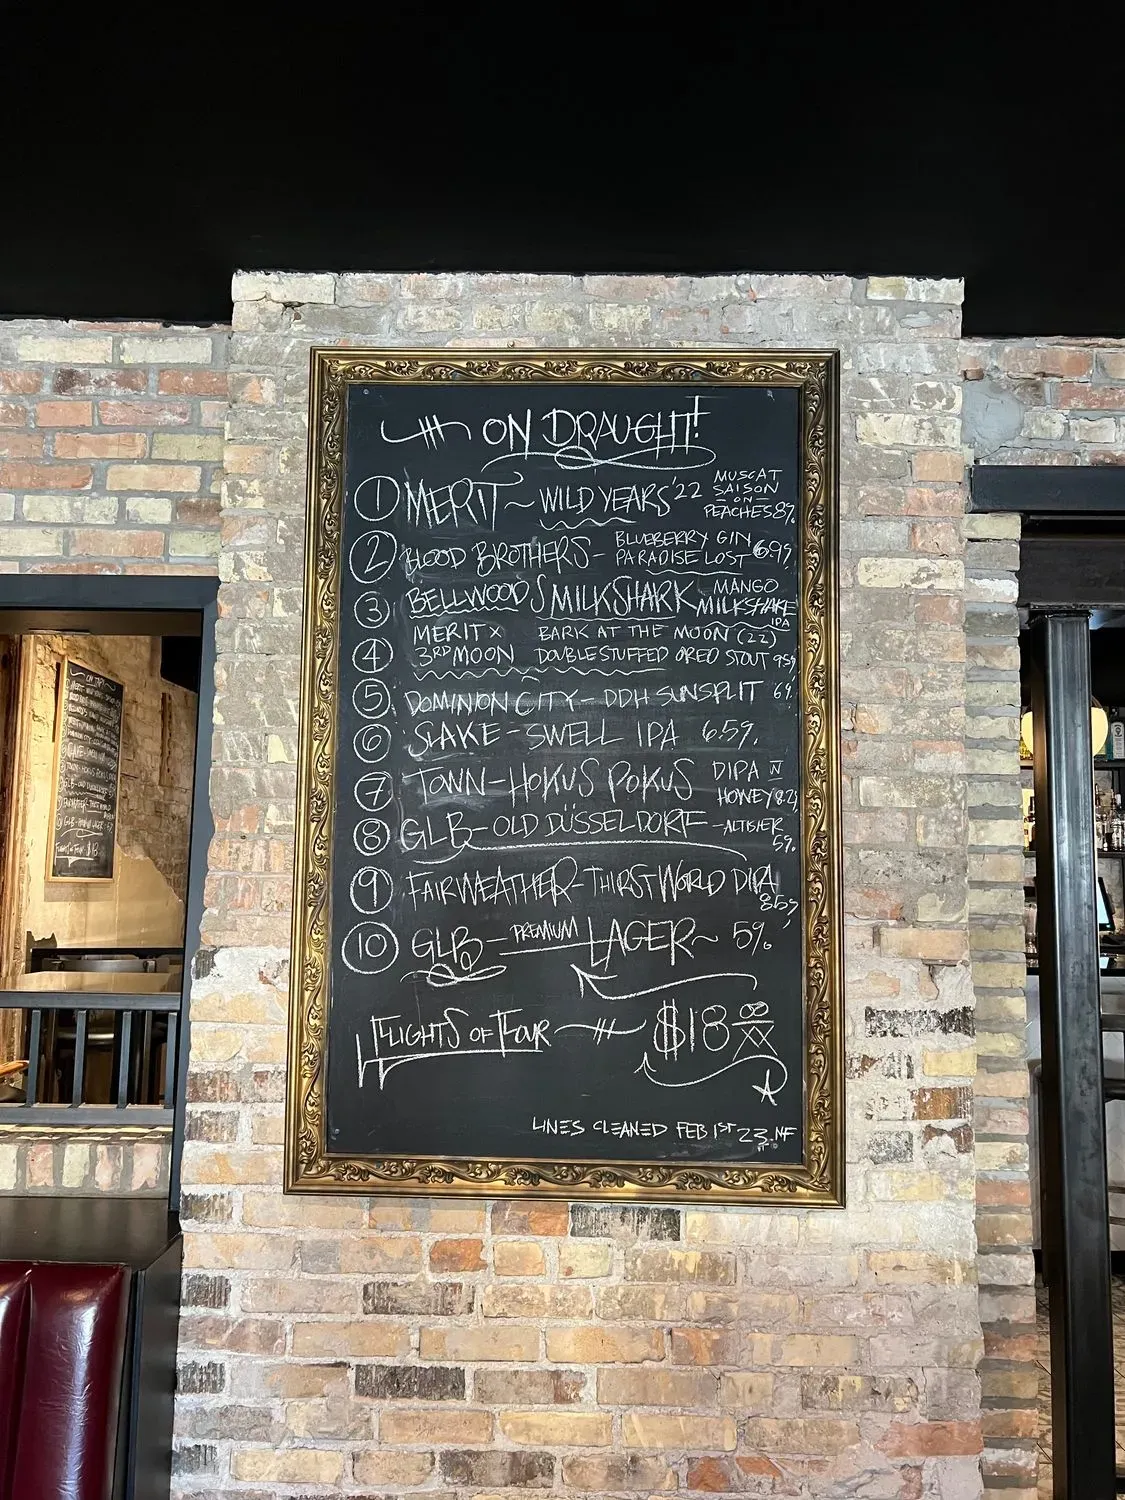 ON DRAUGHT!
1 MERIT ~ WILD YEARS '22 MUSCAT SAISON - ON - PEACHES 8%
2 BLOOD BROTHERS - BLUEBERRY GIN PARADISE LOST 6.9%
3 BELLWOODS MILKSHARK MANGO MILKSHAKE IPA
4 MERIT X 3RD MOON BARK AT THE MOON (22) DOUBLE STUFFED OREO STOUT 9.5%
5 DOMINION CITY - DDH SUNSPLIT 6%
6 SLAKE - SWELL IPA 6.5%
7 TOWN - HOKUS POKUS DIPA W HONEY 8.2%
8 GLB - OLD DÜSSELDORF - ALTBIER 5%
9 FAIRWEATHER - THIRST WORLD DIPA 8.5%
10 GLB - PREMIUM LAGER ~ 5%
FLIGHTS OF FOUR $18 00/XX
LINES CLEANED FEB 1ST 23. NF